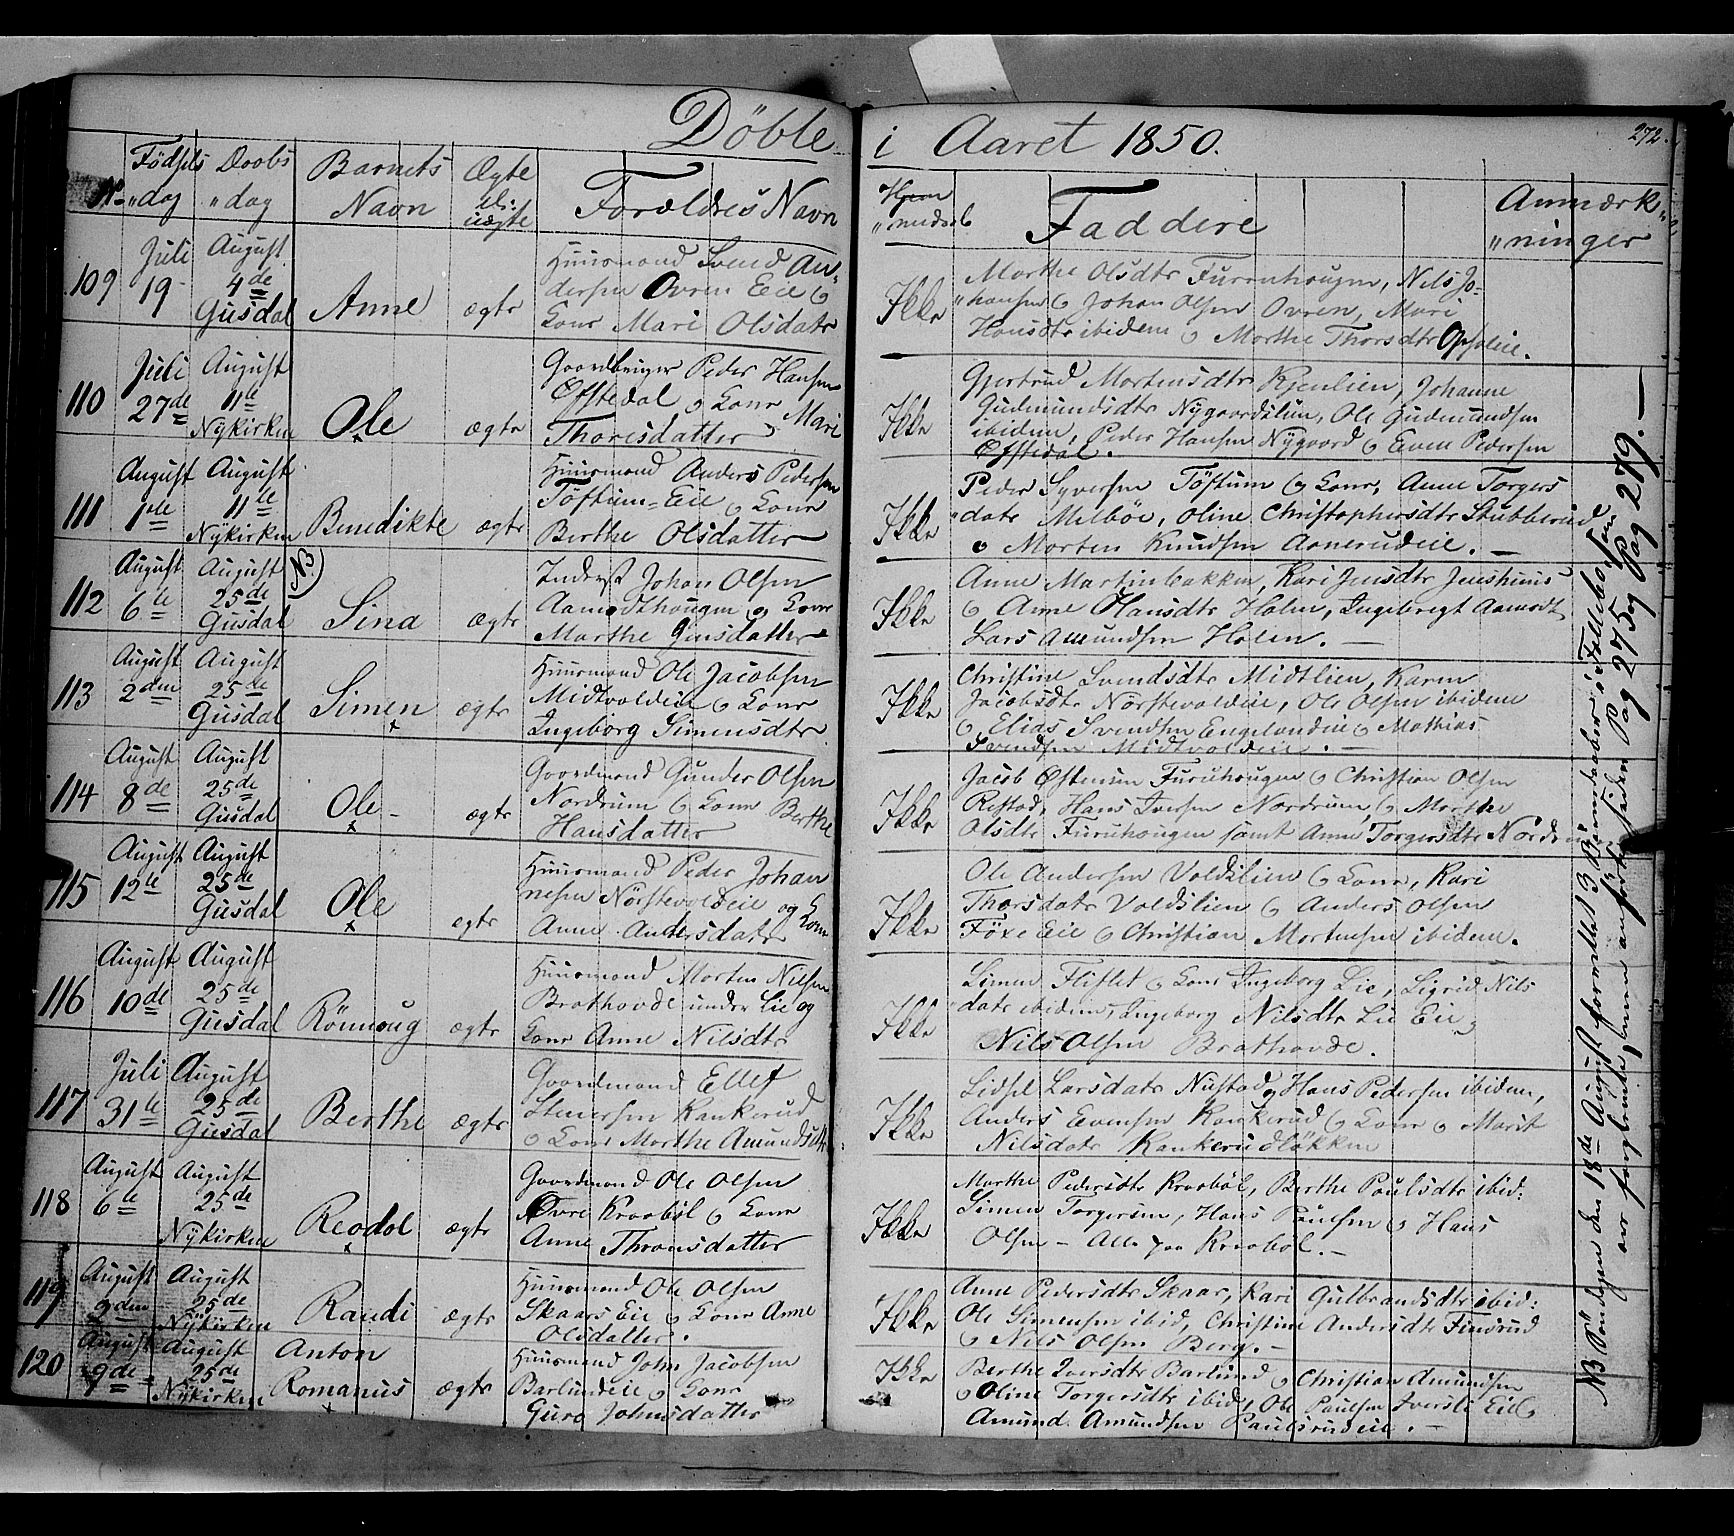 Döbte i Aaret 1850.
272.
No Fødsels dag Daabs dag Barnets Navn Ægte el: uægte Forældres Navn Hjem medaab Faddere Anmærk-ninger
109 Juli 19 August 4de Gusdal Anne ægte Huusmand Svend An-
dersen Ovren Eie &
Kone Mari Olsdatr
Ikke Marthe Olsdtr Furruhougen, Nils Jo-
hansen & Johan Olsen Ovren, Mari
Hansdtr ibidem & Marthe Thorsdtr Opseie.
110 Juli 27de August 11te Nykirken Ole ægte Gaardbruger Peder Hansen
Øfstedal & Kone Mari
Thorisdatter
Ikke Gjertrud Mortensdtr Kjenlien, Johanne
Gudmundsdtr Nygaardslien, Ole Gudmundsen
ibidem, Peder Hansen Nygaard & Even Pedersen
Øfstedal.
111 August 1ste August 11te Nykirken Benedikte ægte Huusmand Anders Pedersen
Töftum-Eie & Kone
Berthe Olsdatter
Ikke Peder Syversen Töftum & Kone, Anne Torgers
datr Melböe, Oline Christophersdtr Stubberud
& Morten Knudsen Aanerudeie. —
112 August 6te August 25de Gusdal NB) Sina ægte Inderst Johan Olsen
Aamodthougen & Kone
Marthe Guusdatter
Ikke Anne Martinbakken, Kari Jensdtr Jenshuus
& Anne Hansdtr Holen, Ingebregt Aamodt
Lars Amundsen Holen. —
113 August 2den August 25de Gusdal Simen ægte Huusmand Ole Jacobsen
Midtvoldeie & Kone
Ingeborg Simensdtr
Ikke Christine Svendsdtr Midtlien, Karen
Jacobsdtr Nörstevoldeie, Ole Olsen ibidem
& Elias Svendsen Engelandeie & Mathias
Svendsen Midtvoldeie. —
114 August 8de August 25de Gusdal Ole ægte Gaardmand Gunder Olsen
Nordrum & Kone Berthe
Hansdatter
Ikke Jacob Østensen Furuhougen & Christian Olsen
Restad, Hans Iversen Nordrum, & Marthe
Olsdtr Furuhougen samt Anne Torgersdtr Nordrum
115 August 12te August 25de Gusdal Ole ægte Huusmand Peder Johan
nesen Nörstevoldeie og Kone
Anne Andersdatr
Ikke Ole Andersen Voldslien & Kone, Kari
Thorsdatr Voldslien & Anders Olsen
Föxe Eie & Christian Mortensen ibidem.
116 August 10de August 25de Gusdal Rönnoug ægte Huusmand Morten Nilsen
Brathovde under Lie og
Kone Anne Nilsdtr
Ikke Simen Fliflet & Kone Ingeborg Lie, Sigrid Nils
datr ibidem, Ingeborg Nilsdtr Lie Eie,
Nils Olsen Brathovde.
117 Juli 31te August 25de Gusdal Berthe ægte Gaardmand Ellef
Stenersen Kankerud
& Kone Marthe Amundsdtr
Ikke Sidsel Larsdatr Nustad, Hans Pedersen ibidem,
Anders Evensen Kankerud & Kone & Marit
Nilsdatr Kankerudlökken
118 August 6te August 25de Nykirken Reodol ægte Gaardmand Ole Olsen
Øvre Kraaböl & Kone
Anne Thronsdatter
Ikke Marthe Pedersdtr Kraaböl, Berthe Paulsdtr ibid:
Simen Torgersen, Hans Paulsen & Hans
Olsen — Alle paa Kraaböl. —
119 August 2den August 25de Nykirken Randi ægte Huusmand Ole Olsen
Skaars Eie & Kone Anne
Olsdatter.
Ikke Anne Pedersdtr Skaar, Kari Gulbrandsdtr ibid:
Ole Simensen ibid, Christine Andersdtr Finsrud
& Nils Olsen Berg. —
120 August 9de August 25de Nykirken Anton
Romanus ægte Huusmand John Jacobsen
Barlundeie & Kone
Guro Johnsdatter
Ikke Berthe Iversdtr Barlund & Christian Amundsen
& Oline Torgersdtr ibid, Ole Paulsen Iversli Eie &
Amund Amundsen Paulsrudeie. —
NB Söndagen den 18de August forrettes 3 Barnedaaber i Follebo, som
ere forglemte, men anförte siden Pag 275 og Pag 279. —